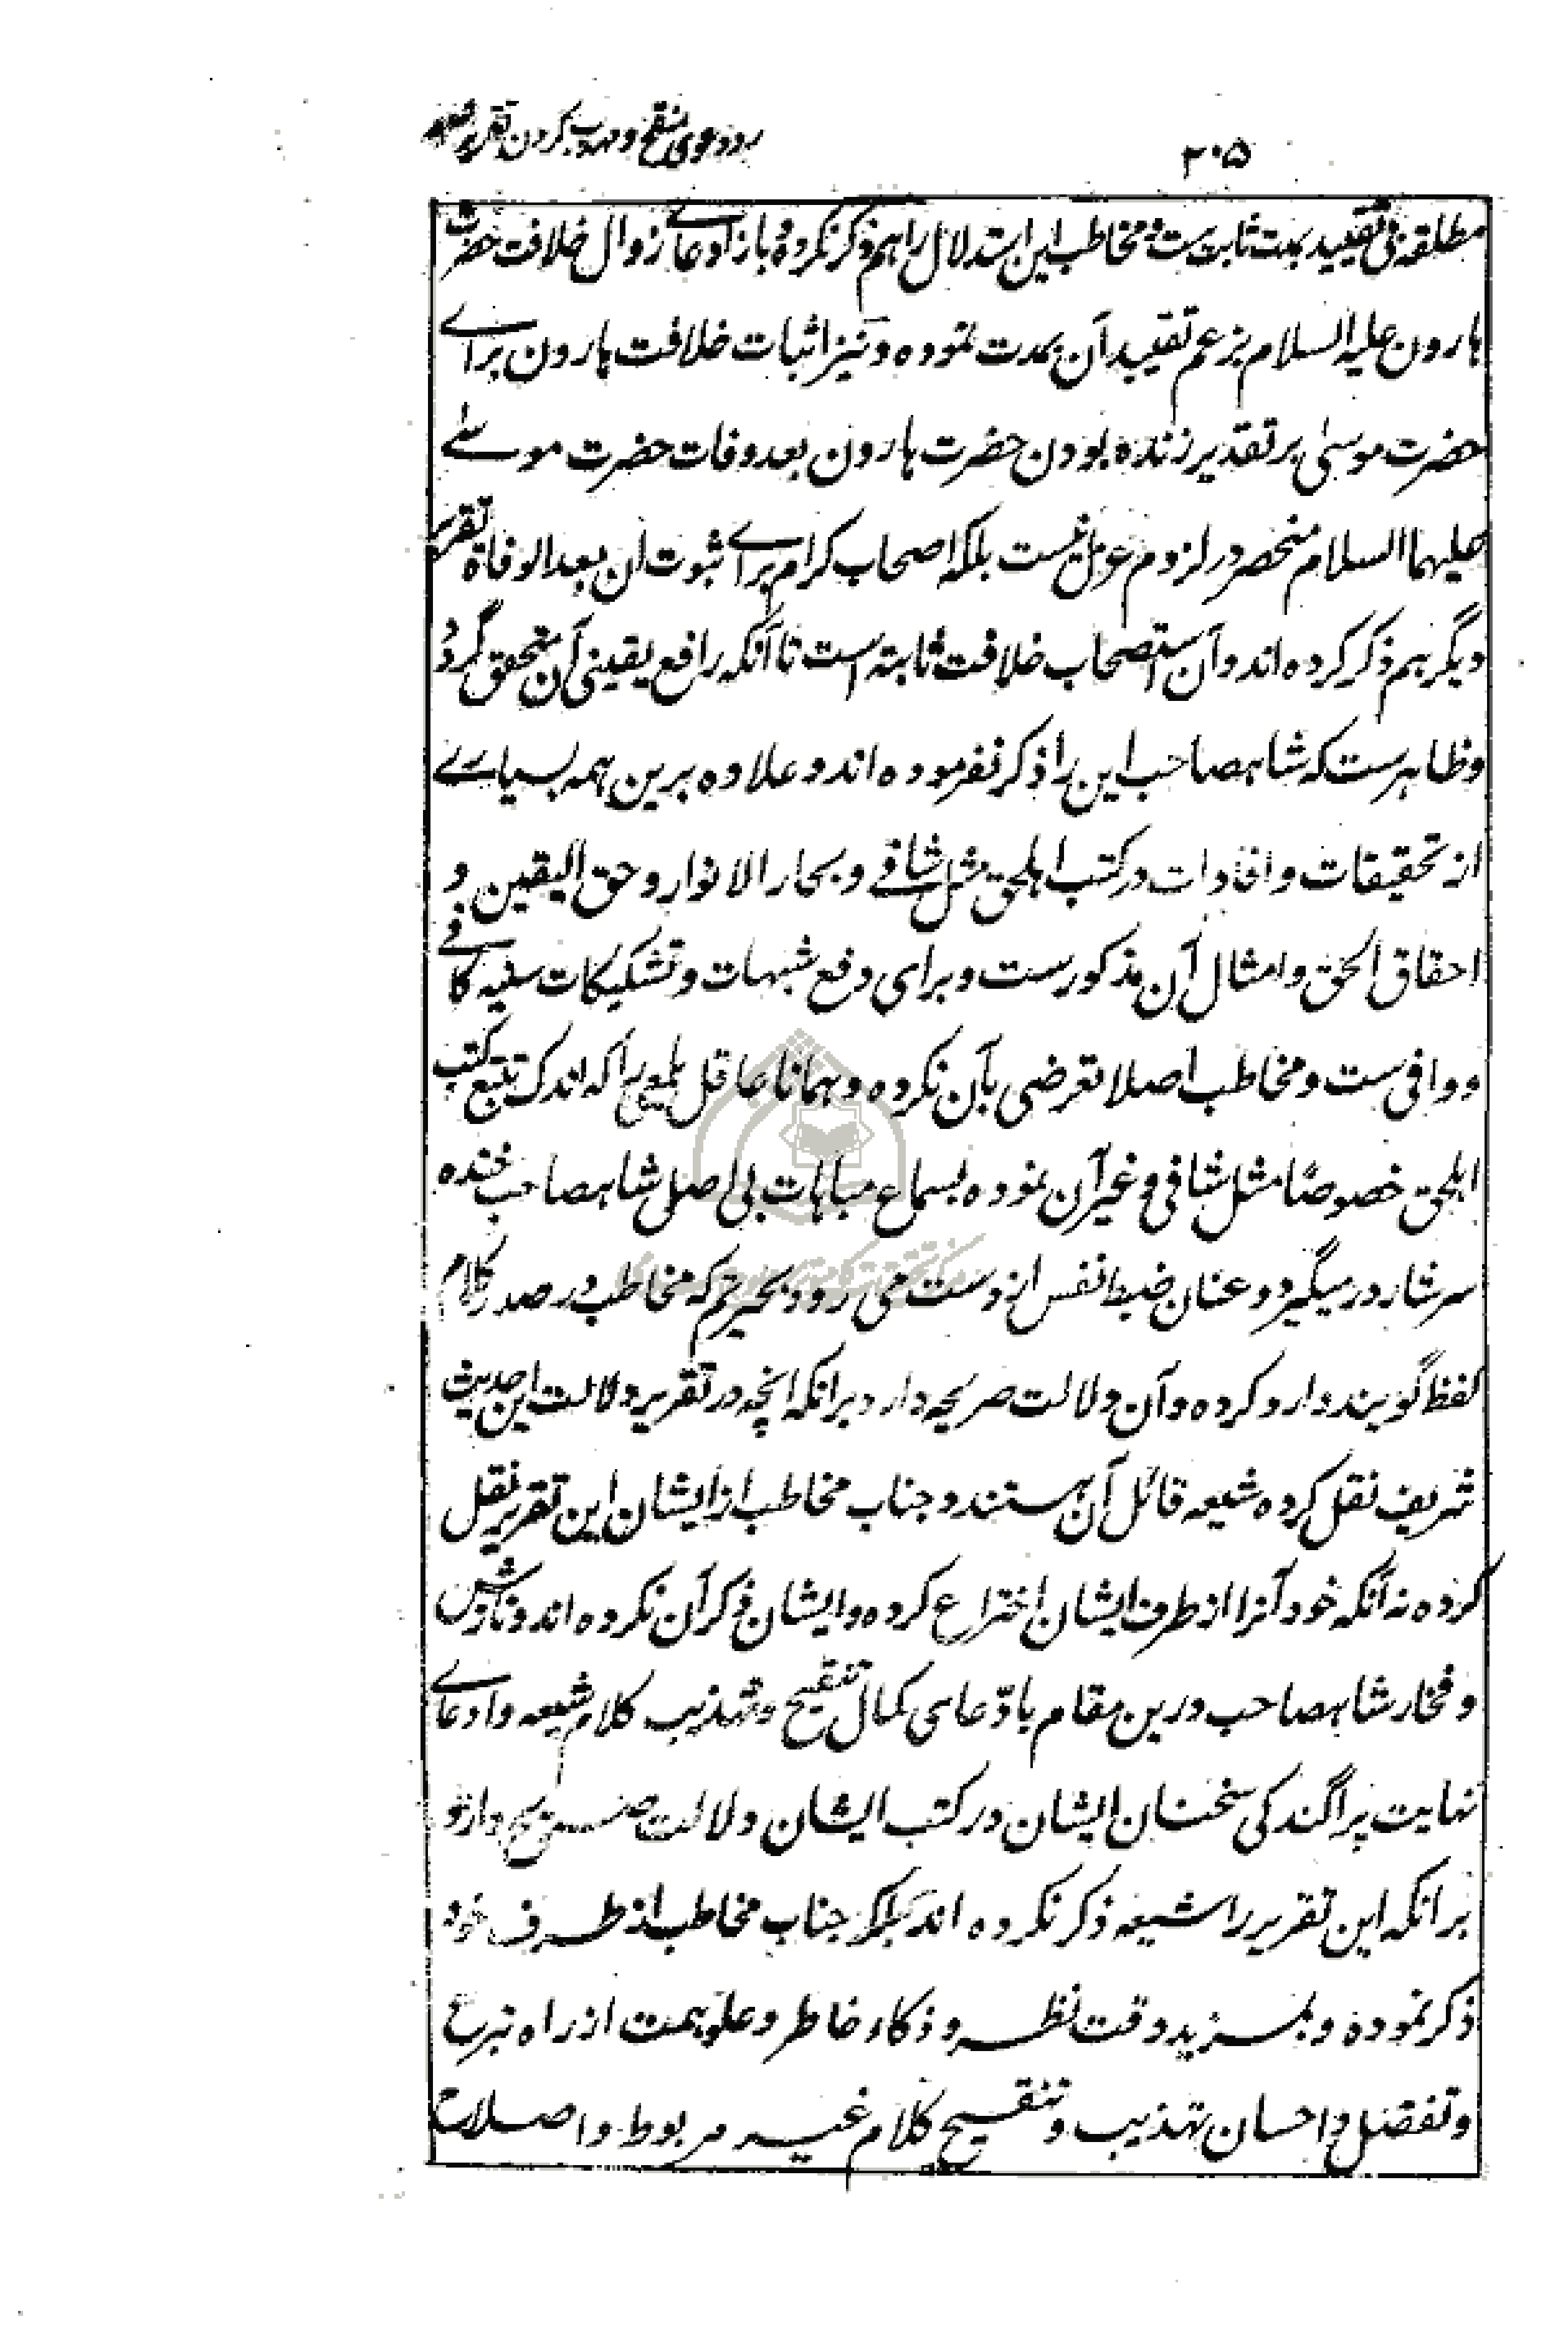 ۲۰۵
رد دعوی منقح و مهذب کردن تقریر شیعه
مطلقه بی تقیید بمدت ثابت ست و مخاطب این استدلال را هم ذکر نکرده و باز ادعاے زوال خلافت حضرت
هارون علیه السلام بزعم تقیید آن بمدت نموده و نیز اثبات خلافت هارون براے
حضرت موسیٰ بر تقدیر زنده بودن حضرت هارون بعد وفات حضرت موسے
علیهما السلام منحصر در لزوم عزل نیست بلکه اصحاب کرام براے ثبوت آن بعد الوفاة تقریر
دیگر هم ذکر کرده اند و آن استصحاب خلافت ثابته است تا آنکه رافع یقینی آن متحقق گردد
و ظاهرست که شاهصاحب این را ذکر نفرموده اند و علاوه برین همه بسیارے
از تحقیقات و افادات در کتب اهلحق مثل شافے و بحار الانوار و حق الیقین و
احقاق الحق و امثال آن مذکورست و برای دفع شبهات و تشکیکات سنیه کافے
و وافی ست و مخاطب اصلا تعرضی بآن نکرده و همانا عاقل یلمعی را که اندک تتبع کتب
اهلحق خصوصًا مثل شافی و غیر آن نموده بسماع مباهات بی اصل شاهصاحب خنده
سرشار درمیگیرد و عنان ضبط نفس از دست می رود بحیرتم که مخاطب در صدر کلام
لفظ گویند وارد کرده و آن دلالت صریحه دارد برانکه انچه در تقریر دلالت این حدیث
شریف نقل کرده شیعه قائل آن هستند و جناب مخاطب از ایشان این تقریر نقل
کرده نه آنکه خود آنرا از طرف ایشان اختراع کرده و ایشان ذکر آن نکرده اند و نازش
و فخار شاهصاحب درین مقام بادّعای کمال تنقیح و تهذیب کلام شیعه و ادعاے
نهایت پراگندگی سخنان ایشان در کتب ایشان دلالت صریح دارد
برانکه این تقریر را شیعه ذکر نکرده اند بلکه جناب مخاطب از طرف خود
ذکر نموده و بمزید دقت نظر و ذکاء خاطر و علو همت از راه تبرع
و تفضل و احسان تهذیب و تنقیح کلام غیر مربوط و اصلاح